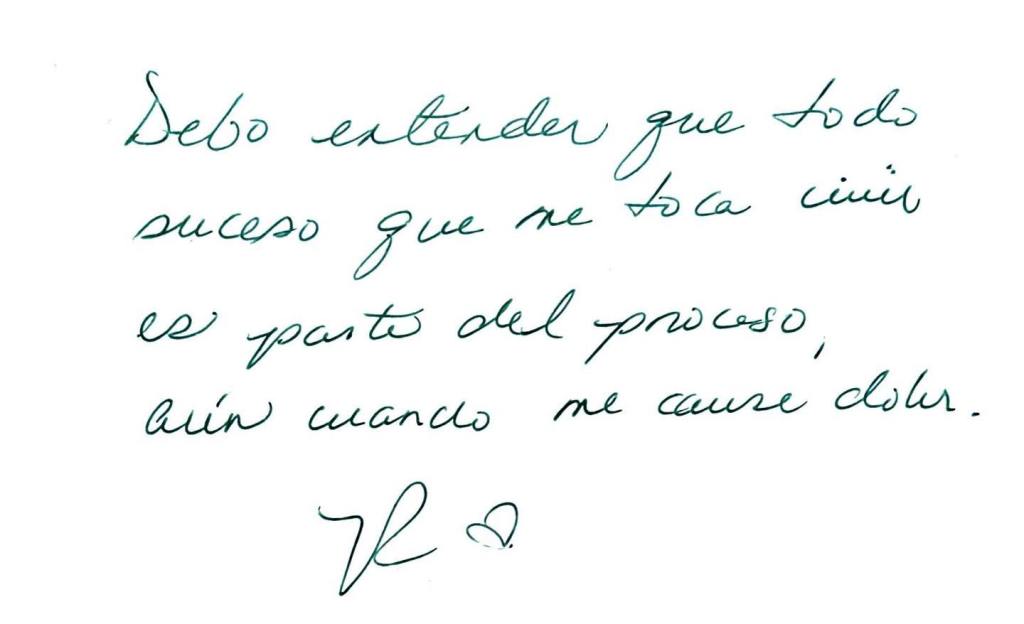 Debo entender que todo
suceso que me toca vivir
es parte del proceso,
aún cuando me cause dolor.